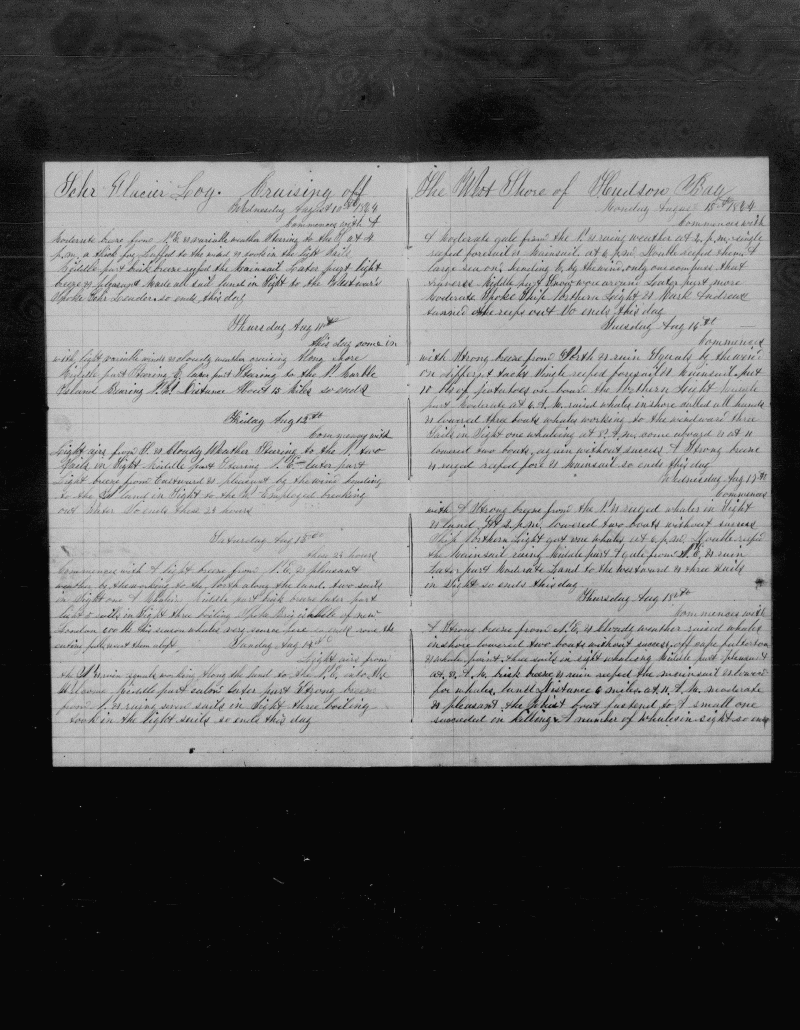 Schr Glacier Log. Cruising off
Wednesday August 10th 1864
Commences with A
Moderate breeze from N.E. & variable weather Steering to the S at 4
p.m. a thick fog luffed to the wind & took in the light Sails
Middle part brisk breeze reefed the Mainsail Later part light
breeze & pleasant Made all sail land in Sight to the Westward
Spoke Schr Leader. so ends this day
Thursday Aug 11th
this day come in
with light variable winds & cloudy weather cruising along shore
Middle part Steering E. later part Steering to the N. Marble
Island Bearing Distance about 15 Miles so ends
Friday Aug 12th
Commences with
Light airs from S. & Cloudy Weather Steering to the N. two
Sails in Sight Middle part Steering N.E. Later part
Light breeze from Eastward & pleasant by the wind heading
to the land in Sight to the W. Employed breaking
out water So ends these 24 hours
Saturday Aug 13th
these 24 hours
Commences with A light breeze from N.E. & pleasant
weather by the working to the North along the land, two sails
in Sight one A Whaler. Middle part brisk breeze later part
light 5 sails in Sight three boiling Spoke Brig Isabella of New
London this season whales very scarce here
Sunday Aug 14th
Light airs from
the & rain squals working along the land to the N.E. into the
Welcome Middle part calm later part Strong breeze
from N. & raing seven sails in Sight three boiling
took in the light sails so ends this day
The West Shore of Hudson Bay
Monday August 15th 1864
Commences with
A Moderate gale from the N. & raing weather at 2. p.m. single
reefed foresail & Mainsail. at 6 p.m. Double reefed them A
large sea on, heading E. by the wind, only one compass that
traverses Middle part Snow Later part more
Moderate Spoke Ship Northern Light & Bark Andrews
turned the reefs out So ends this day
Tuesday Aug 16th
Commences
with Strong breeze from North & rain Squals by the wind
on different tacks Single reefed foresail & Mainsail put
10 bbls of potatoes on board the Northern Light Middle
part Moderate at 6. A.M. raised whales inshore called all hands
& lowered three boats whales working to the windward three
Sails in Sight one whaleing at 8. A.M. came aboard & at 11
lowered two boats, again without success A Strong breeze
& ruged reefed fore & Mainsail so ends this day
Wednesday Aug 17th
Commences
with A Strong breeze from the N. & ruged whales in Sight
& land, At 2. p.m. lowered two boats without sucess
Ship Northern Light got one whale at 6. p.m. Double reefed
the Mainsail raing Middle part A gale from N.E. & rain
Later part Moderate Land to the Westward & three sails
in Sight so ends this day
Thursday Aug 18th
Commences with
A Strong breeze from N.E. & Cloudy weather raised whales
inshore lowered two boats without success, off cape Fullerton
& whale point. three sails in sight whaleing Middle part pleasant
at 8. A.M. brisk breeze & rain reefed the mainsail & lowered
for whales, land Distance 6 miles at 11. A.M. moderate
& pleasant the boat fastend to A small one
succeeded in killing A number of whales in sight so ends